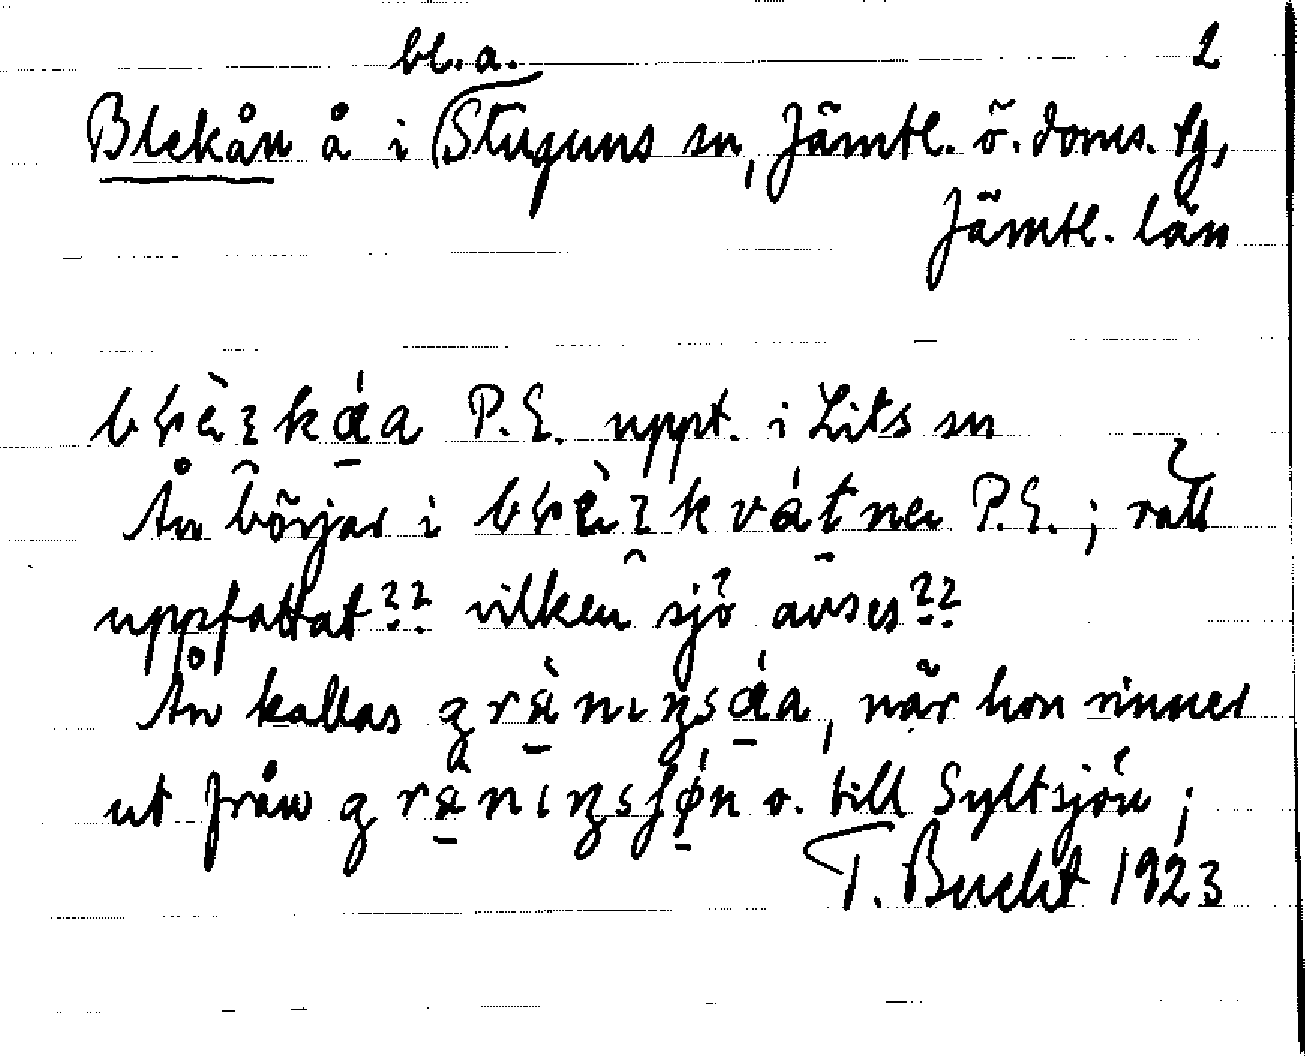 bl. a. 2
Blekån å i Stuguns sn, Jämtl. ö. doms. tg,
Jämtl. län
P.E. uppt. i Lits sn
Ån börjar i P.E.; rätt
uppfattat?? vilken sjö avses??
Ån kallas grä̀nıŋsá̱a, när hon rinner
ut från grä̀nıŋsʃǿn o. till Syltsjön;
T. Bucht 1923